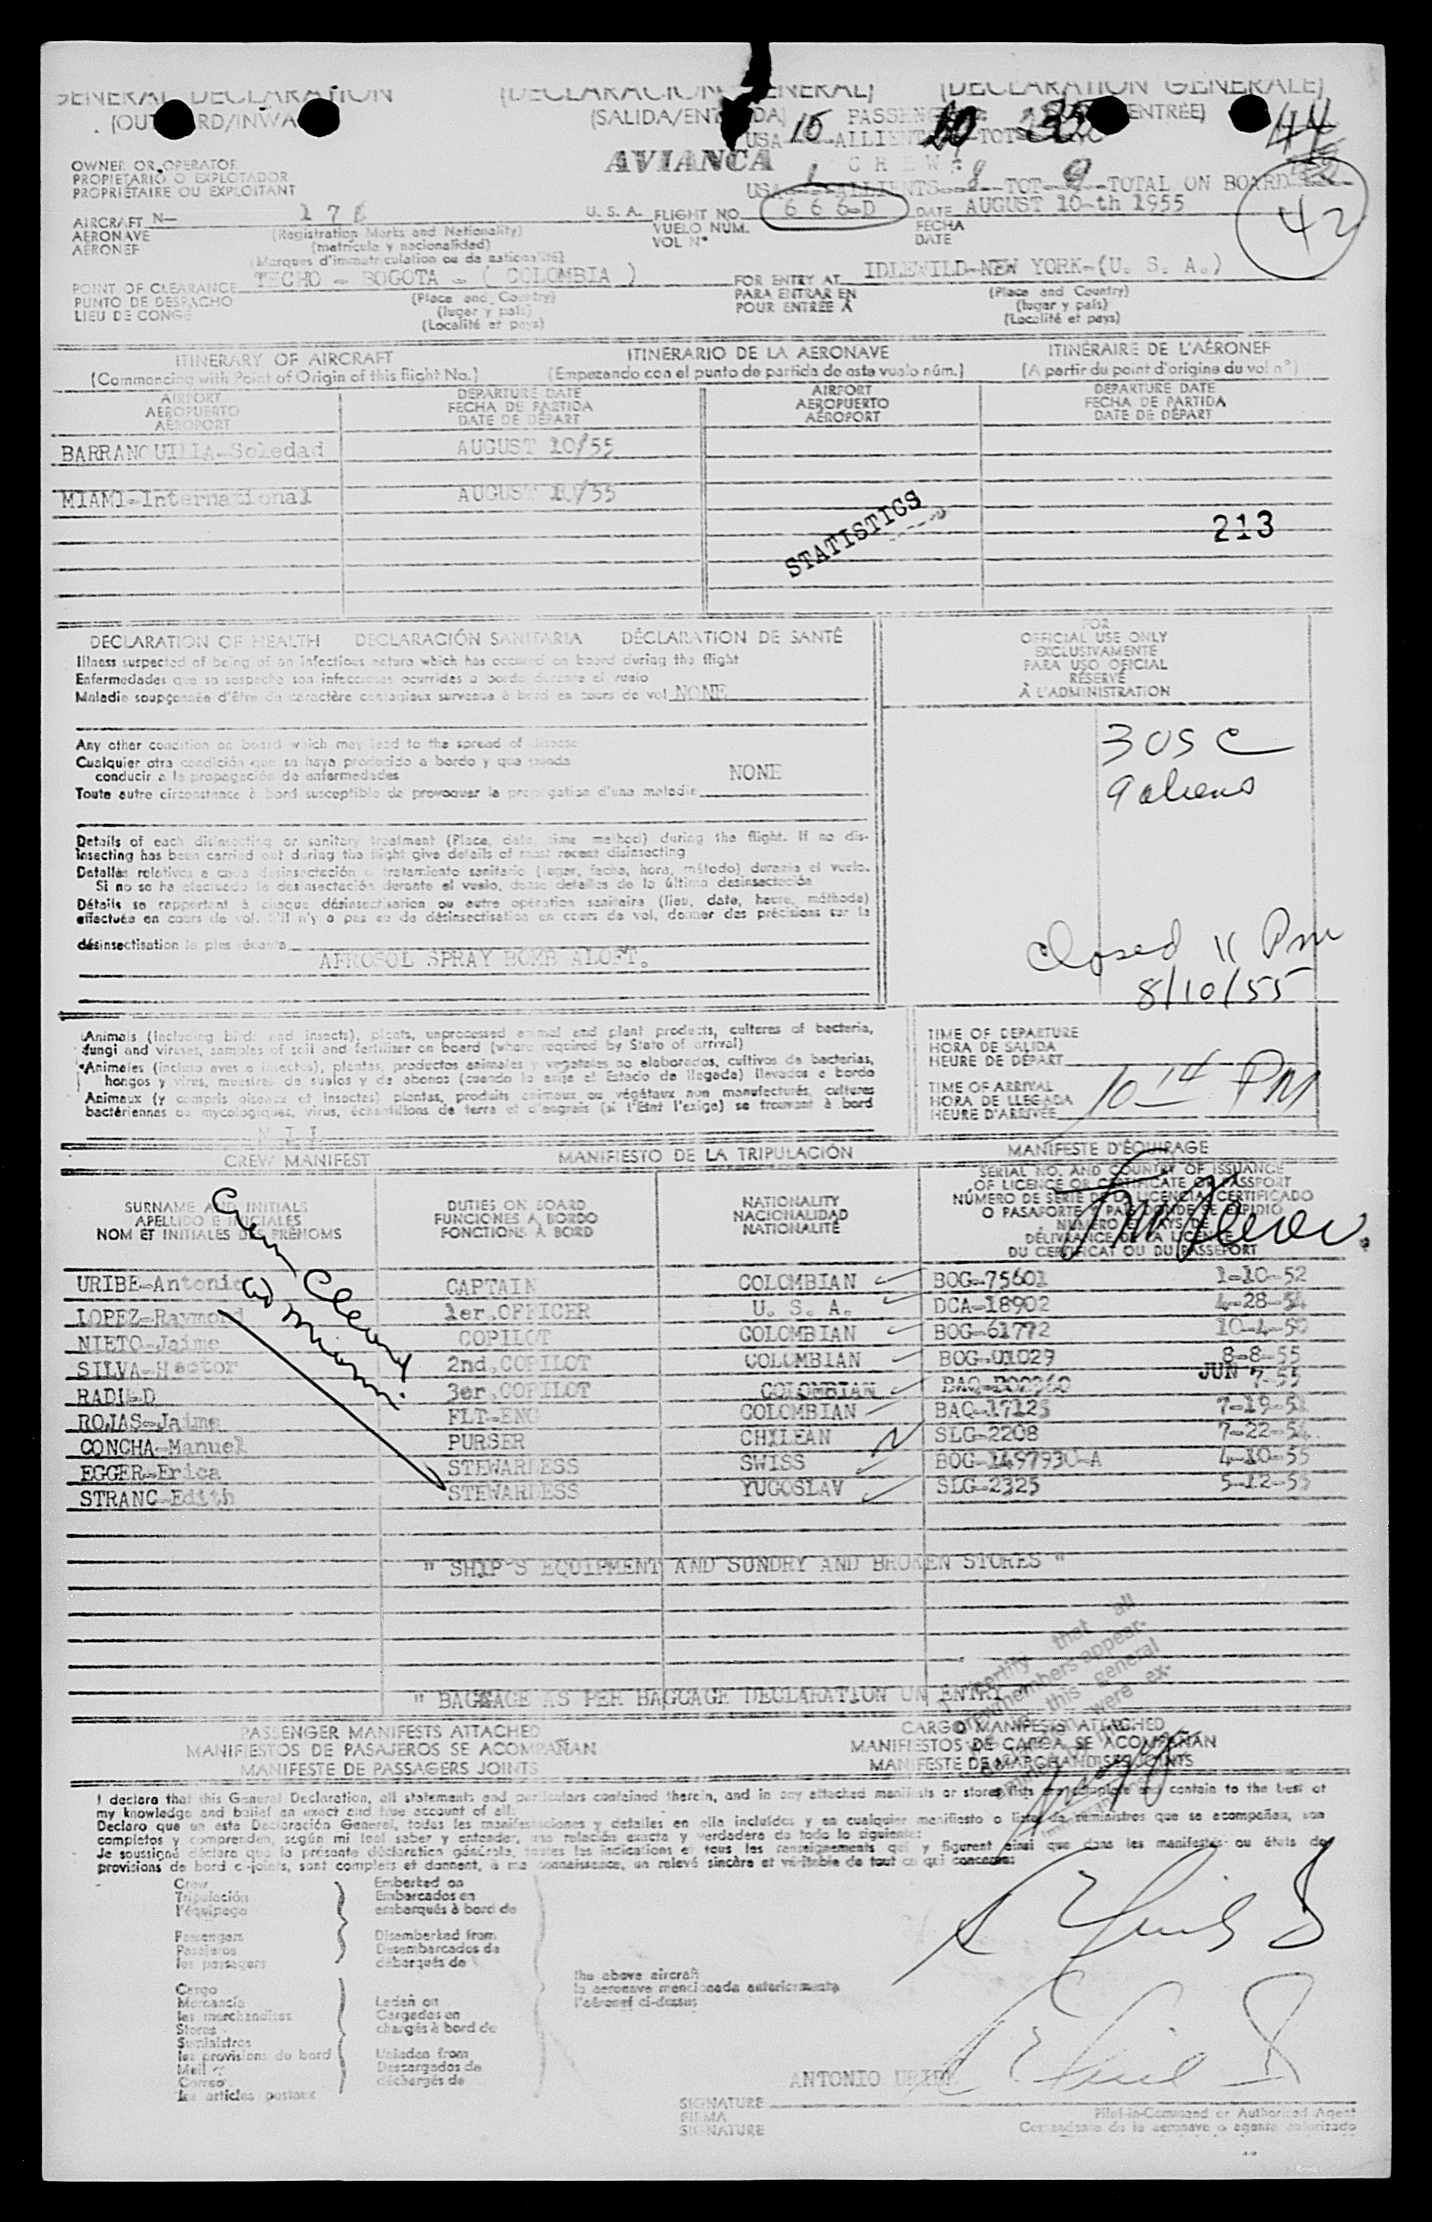 GENERAL DECLARATION (DECLARACION GENERAL) (DECLARATION GENERALE)
(SALIDA/ENTRADA) PASSENGERS
USA 15
AVIANCA CREW:
USA 1 ALLIENTS 8 TOT 9 TOTAL ON BOARD
44
42
OWNER OR OPERATOR
PROPIETARIO O EXPLOTADOR
PROPRIÉTAIRE OU EXPLOITANT
AIRCRAFT N- U. S. A. FLIGHT NO. 666-D DATE AUGUST 10-th 1955
AERONAVE (Registration Marks and Nationality) VUELO NUM. FECHA
AÉRONEF (matricula y nacionalidad) VOL N° DATE
(Marques d'immatriculation ou de nationalité)
POINT OF CLEARANCE TECHO - BOGOTA - ( COLOMBIA ) FOR ENTRY AT IDLEWILD-NEW YORK-(U. S. A.)
PUNTO DE DESPACHO (Place and Country) PARA ENTRAR EN (Place and Country)
LIEU DE CONGÉ (lugar y pais) POUR ENTRÉE À (lugar y país)
(Localité et pays) (Localité et pays)
ITINERARY OF AIRCRAFT ITINERARIO DE LA AERONAVE ITINÉRAIRE DE L'AÉRONEF
(Commencing with Point of Origin of this flight No.) (Empezando con el punto de partida de este vuelo núm.) (A partir du point d'origine du vol n°)
AIRPORT DEPARTURE DATE AIRPORT DEPARTURE DATE
AEROPUERTO FECHA DE PARTIDA AEROPUERTO FECHA DE PARTIDA
AÉROPORT DATE DE DÉPART AÉROPORT DATE DE DÉPART
BARRANQUILLA-Soledad AUGUST 10/55
MIAMI-International AUGUST 10/55
STATISTICS
213
DECLARATION OF HEALTH DECLARACIÓN SANITARIA DÉCLARATION DE SANTÉ
Illness suspected of being of an infectious nature which has occurred on board during the flight
Enfermedades que se sospeche son infecciosas ocurridas a bordo durante el vuelo
Maladie soupçonnée d'être de caractère contagieux survenue à bord en cours de vol NONE
FOR
OFFICIAL USE ONLY
EXCLUSIVAMENTE
PARA USO OFICIAL
RÉSERVÉ
À L'ADMINISTRATION
Any other condition on board which may lead to the spread of disease
Cualquier otra condición que se haya producido a bordo y que pueda
conducir a la propagación de enfermedades NONE
Toute autre circonstance à bord susceptible de provoquer la propagation d'une maladie
30SC
9 aliens
Details of each disinsecting or sanitary treatment (Place, date, time method) during the flight. If no dis-
insecting has been carried out during the flight give details of most recent disinsecting
Detalles relativos a cada desinsectación o tratamiento sanitario (lugar, fecha, hora, método) durante el vuelo.
Si no se ha efectuado la desinsectación durante el vuelo, dense detalles de la última desinsectación
Détails se rapportant à chaque désinsectisation ou autre opération sanitaire (lieu, date, heure, méthode)
effectuée en cours de vol. S'il n'y a pas eu de désinsectisation en cours de vol, donner des précisions sur la
désinsectisation la plus récente
AEROSOL SPRAY BOMB ALOFT.
closed 11 Pm
8/10/55
Animals (including birds and insects), plants, unprocessed animal and plant products, cultures of bacteria,
fungi and viruses, samples of soil and fertilizer on board (where required by State of arrival)
Animales (incluso aves e insectos), plantas, productos animales y vegetales no elaborados, cultivos de bacterias,
hongos y virus, muestras de suelos y de abonos (cuando lo exija el Estado de llegada) llevados a bordo
Animaux (y compris oiseaux et insectes) plantas, produits animaux ou végétaux non manufacturés, cultures
bactériennes ou mycologiques, virus, échantillons de terre et d'engrais (si l'Etat l'exige) se trouvant à bord
NIL
TIME OF DEPARTURE
HORA DE SALIDA
HEURE DE DÉPART
TIME OF ARRIVAL
HORA DE LLEGADA
HEURE D'ARRIVÉE
10 14 PM
CREW MANIFEST MANIFIESTO DE LA TRIPULACIÓN MANIFESTE D'ÉQUIPAGE
SURNAME AND INITIALS DUTIES ON BOARD NATIONALITY
APELLIDO E INICIALES FUNCIONES A BORDO NACIONALIDAD
NOM ET INITIALES DES PRÉNOMS FONCTIONS À BORD NATIONALITÉ
SERIAL NO. AND COUNTRY OF ISSUANCE
OF LICENCE OR CERTIFICATE OR PASSPORT
NÚMERO DE SERIE DE LA LICENCIA, CERTIFICADO
O PASAPORTE Y PAIS DONDE SE EXPIDIO
NUMÉRO ET PAYS DE
DÉLIVRANCE DE LA LICENCE
DU CERTIFICAT OU DU PASSEPORT
Crew Cleared
at Miami.
URIBE-Antonio CAPTAIN COLOMBIAN BOG-75601 1-10-52
LOPEZ-Raymond 1er.OFFICER U. S. A. DCA-18902 4-28-54
NIETO-Jaime COPILOT COLOMBIAN BOG-61772 10-4-50
SILVA-Hector 2nd.COPILOT COLOMBIAN BOG-01029 8-8-55
RADI-D 3er.COPILOT COLOMBIAN JUN 7-55
ROJAS-Jaime FLT-ENG COLOMBIAN BAQ-17123 7-19-51
CONCHA-Manuel PURSER CHILEAN SLG-2208 7-22-54
EGGER-Erica STEWARDESS SWISS BOG-1497930-A 4-10-55
STRANC-Edith STEWARDESS YUGOSLAV SLG-2325 5-12-55
" SHIP'S EQUIPMENT AND SUNDRY AND BROKEN STORES "
" BAGGAGE AS PER BAGGAGE DECLARATION ON ENTRY
PASSENGER MANIFESTS ATTACHED CARGO MANIFESTS ATTACHED
MANIFIESTOS DE PASAJEROS SE ACOMPAÑAN MANIFIESTOS DE CARGA SE ACOMPAÑAN
MANIFESTE DE PASSAGERS JOINTS MANIFESTE DE MARCHANDISES JOINTS
I declare that this General Declaration, all statements and particulars contained therein, and in any attached manifests or stores lists are complete and contain to the best of
my knowledge and belief an exact and true account of all:
Declaro que en esta Declaración General, todas las manifestaciones y detalles en ella incluídos y en cualquier manifiesto o lista de suministros que se acompañan, son
completos y comprenden, según mi leal saber y entender, una relación exacta y verdadera de todo lo siguiente:
Je soussigné déclare que la présente déclaration générale, toutes les indications et tous les renseignements qui y figurent ainsi que dans les manifestes ou états de
provisions de bord ci-joints, sont complets et donnent, à ma connaissance, un relevé sincère et véritable de tout ce qui concerne:
Crew Embarked on
Tripulación Embarcados en
l'équipage embarqués à bord de
Passengers Disembarked from
Pasajeros Desembarcados de
les passagers débarqués de
the above aircraft
la aeronave mencionada anteriormente
l'aéronef ci-dessus
Cargo
Mercancía Laden on
les marchandises Cargados en
Stores chargés à bord de
Suministros
les provisions de bord Unladen from
Mail Descargados de
Correo déchargés de
les articles postaux
ANTONIO URIBE
SIGNATURE
FIRMA
SIGNATURE
Pilot-in-Command or Authorized Agent
Comandante de la aeronave o agente autorizado